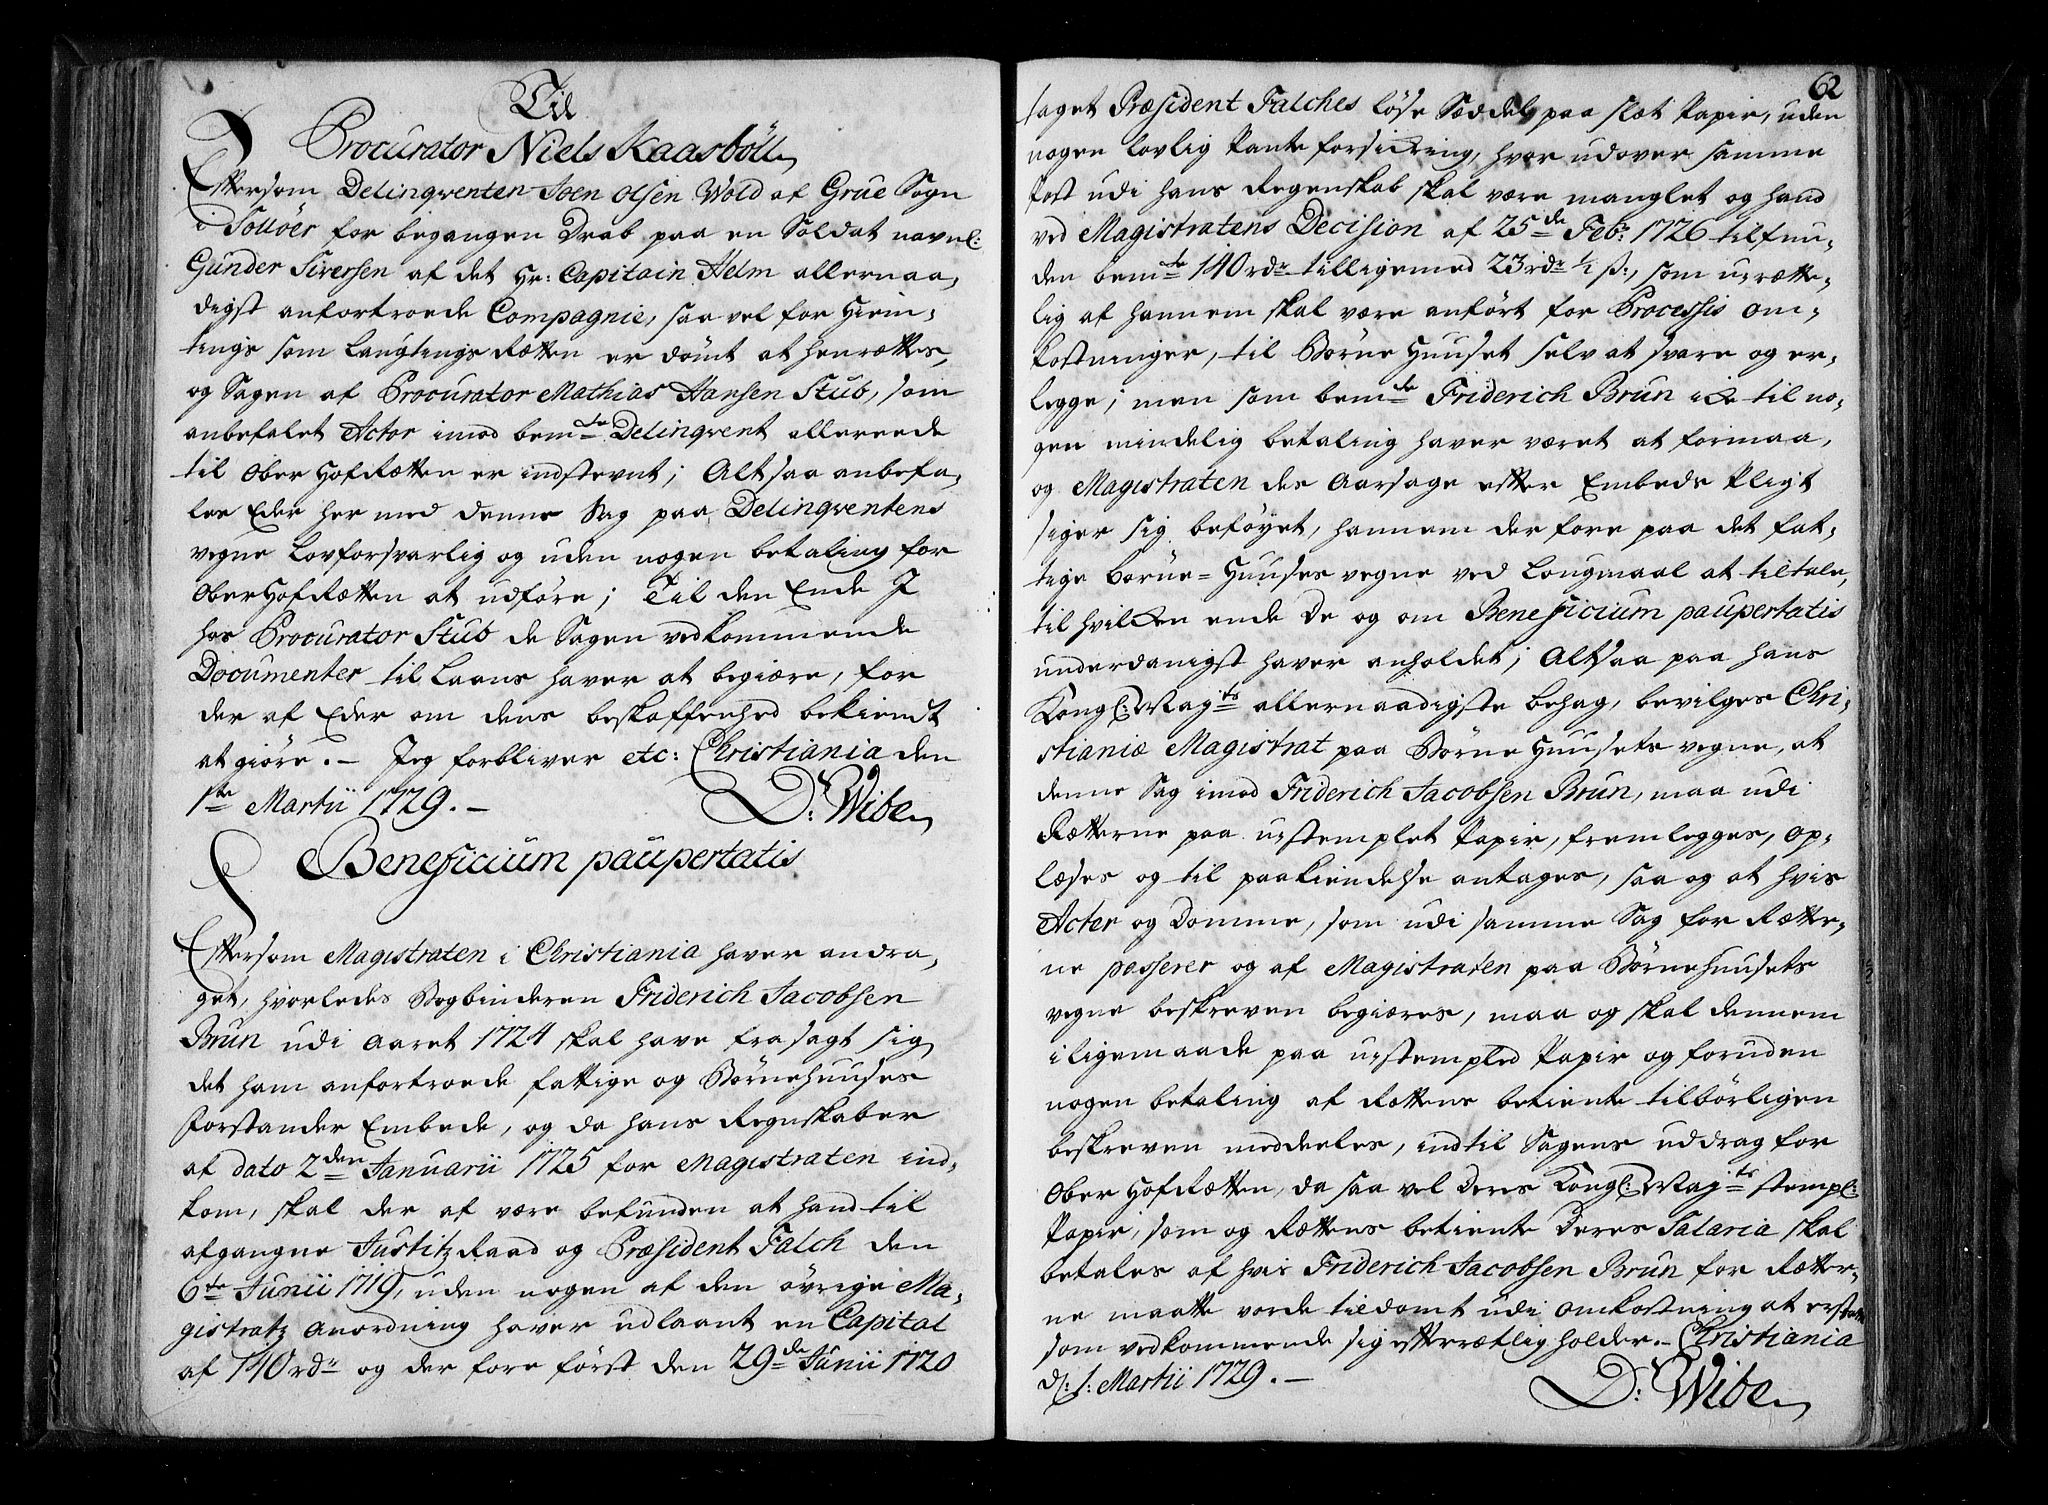 Til
Procurator Niels Kaasböll
Eftersom Delinqventen Joen Olsen Wold af Grue Sogn
i Solloer for begangen Drab paa en Soldat navnl:
Gunder Siversen af det Hr: Capitain Helm allernaa,
digst anfortroede Compagnie, saa vel for Hiem-
tings som Laugtings Rætten er dömt at henrettes,
og Sagen af Procurator Mathias Hansen Stub, som
anbefalet Actor imod bemte Delinqvent allereede
til Ober Hof Rætten er indstevnt; Altsaa anbefa-
les Eder her med denne Sag paa Delinqventens
vegne Lovforsvarlig og uden nogen betaling for
OberHofRætten at udföre; Til den Ende I
hos Procurator Stub de Sagen vedkommende
Documenter til Laans haver at begiære, for
der af Eder om dens beskaffenhed bekiendt
at giöre. - Jeg forbliver etc: Christiania den
1te Martii 1729. -
D: Wibe
Beneficium paupertatis
Eftersom Magistraten i Christiania haver andra,
get, hvorledes Bogbinderen Friderich Jacobsen
Brun udi Aaret 1724 skal have frasagt sig
det ham anfortroede fattige og Börnehuuses
Forstander Embede, og da hans Regnskaber
af dato 2den Januarii 1725 for Magistraten ind-
kom, skal der af være befunden at hand til
afgangne Justitz Raad og Præsident Falch den
6te Junii 1719, uden nogen af den övrige Ma-
gistratz Anordning haver udlaant en Capital
af 140 rdr og der fore först den 29de Junii 1720
62
taget Præsident Falches löse Seddel paa slet Papir, uden
nogen lovlig Pante forsickring, hvor udover samme
Post udi hans Regenskab skal være manglet og hand
ved Magistratens Decision af 25de Feb: 1726 tilfun-
den bemte 140 rdr tilligemed 23 rdr ½ s:, som urætte-
lig af hannem skal være anfört for Processis om-
kostninger, til Börne Huuset selv at svare og er-
legge; men som bemte Friderich Brun icke til no-
gen mindelig betaling haver været at formaa,
og Magistraten des Aarsage efter Embeds Pligt
siger sig beföyet, hannem der fore paa det fat-
tige Börne-Huuses vegne ved Lougmaal at tiltale,
til hvilcken ende De og om Beneficium paupertatis
underdanigst haver anholdet; Altsaa paa Hans
Kongl: Mayts allernaadigste behag, bevilges Chri-
stianiæ Magistrat paa Börne Huusets vegne, at
denne Sag imod Friderich Jacobsen Brun, maa udi
Rætterne paa u-stemplet Papir, fremlegges, op-
læses og til paakiendelse antages, saa og at hvis
Acter og Domme, som udi samme Sag for Rætter-
ne passerer og af Magistraten paa Börnehuusets
vegne beskreven begiæres, maa og skal dennem
i ligemaade paa u-stempled Papir og foruden
nogen betaling af Rættens betiente tilbörligen
beskreven meddeeles, indtil Sagens uddrag for
Ober HofRætten, da saa vel Deres Kongl: Mayts stempl:
Papir, som og Rættens betiente Deres Salaria skal
betales af hvis Friderich Jacobsen Brun for Rætter-
ne maatte vorde tildömt udi Omkostning at erstatte
som vedkommende sig efterrætlig holder. - Christiania
d: 1: Martii 1729. -
D: Wibe